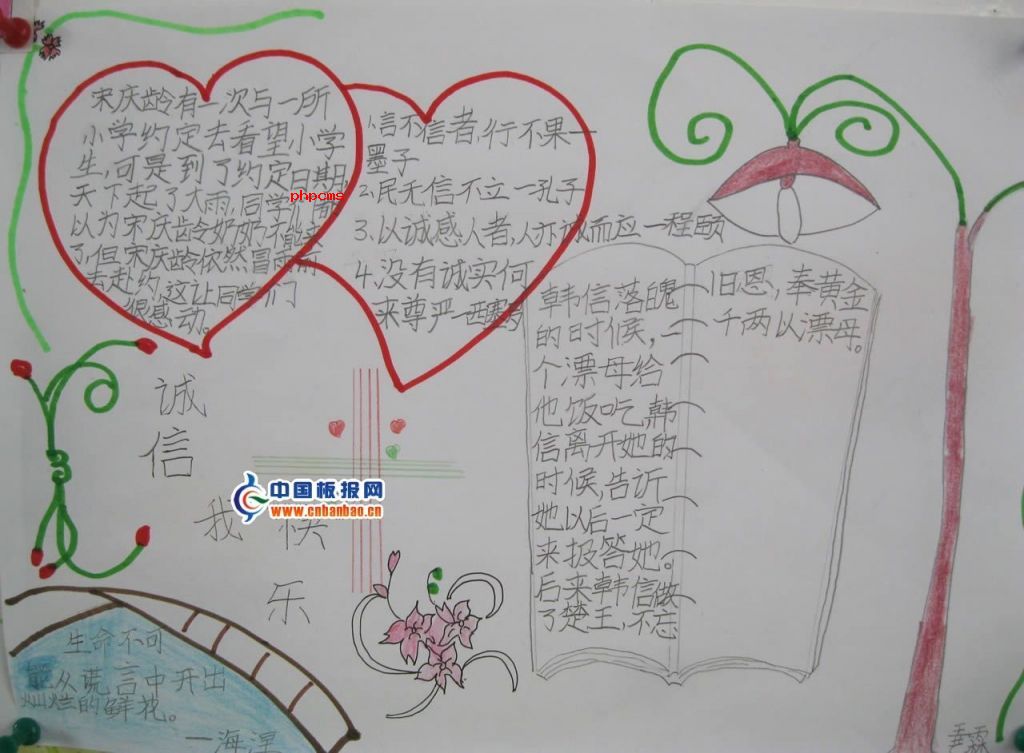 宋庆龄有一次与一所
小学约定去看望小学
生,可是到了约定日期,
天下起了大雨,同学们都
phpcms
以为宋庆龄奶奶不能来
了,但宋庆龄依然冒雨前
去赴约,这让同学们
很感动。
1.信不信者,行不果一
墨子
2.民无信不立一孔子
3.以诚感人者,人亦诚而应一程颐
4.没有诚实何
来尊严一西塞罗
韩信落魄
的时候,一
个漂母给
他饭吃,韩
信离开她的
时候,告诉
她以后一定
来报答她。
后来韩信做
了楚王,不忘
旧恩,奉黄金
千两以漂母。
诚
信
我 快
乐
中国板报网
www.cnbanbao.cn
生命不可
能从谎言中开出
灿烂的鲜花。
一海涅